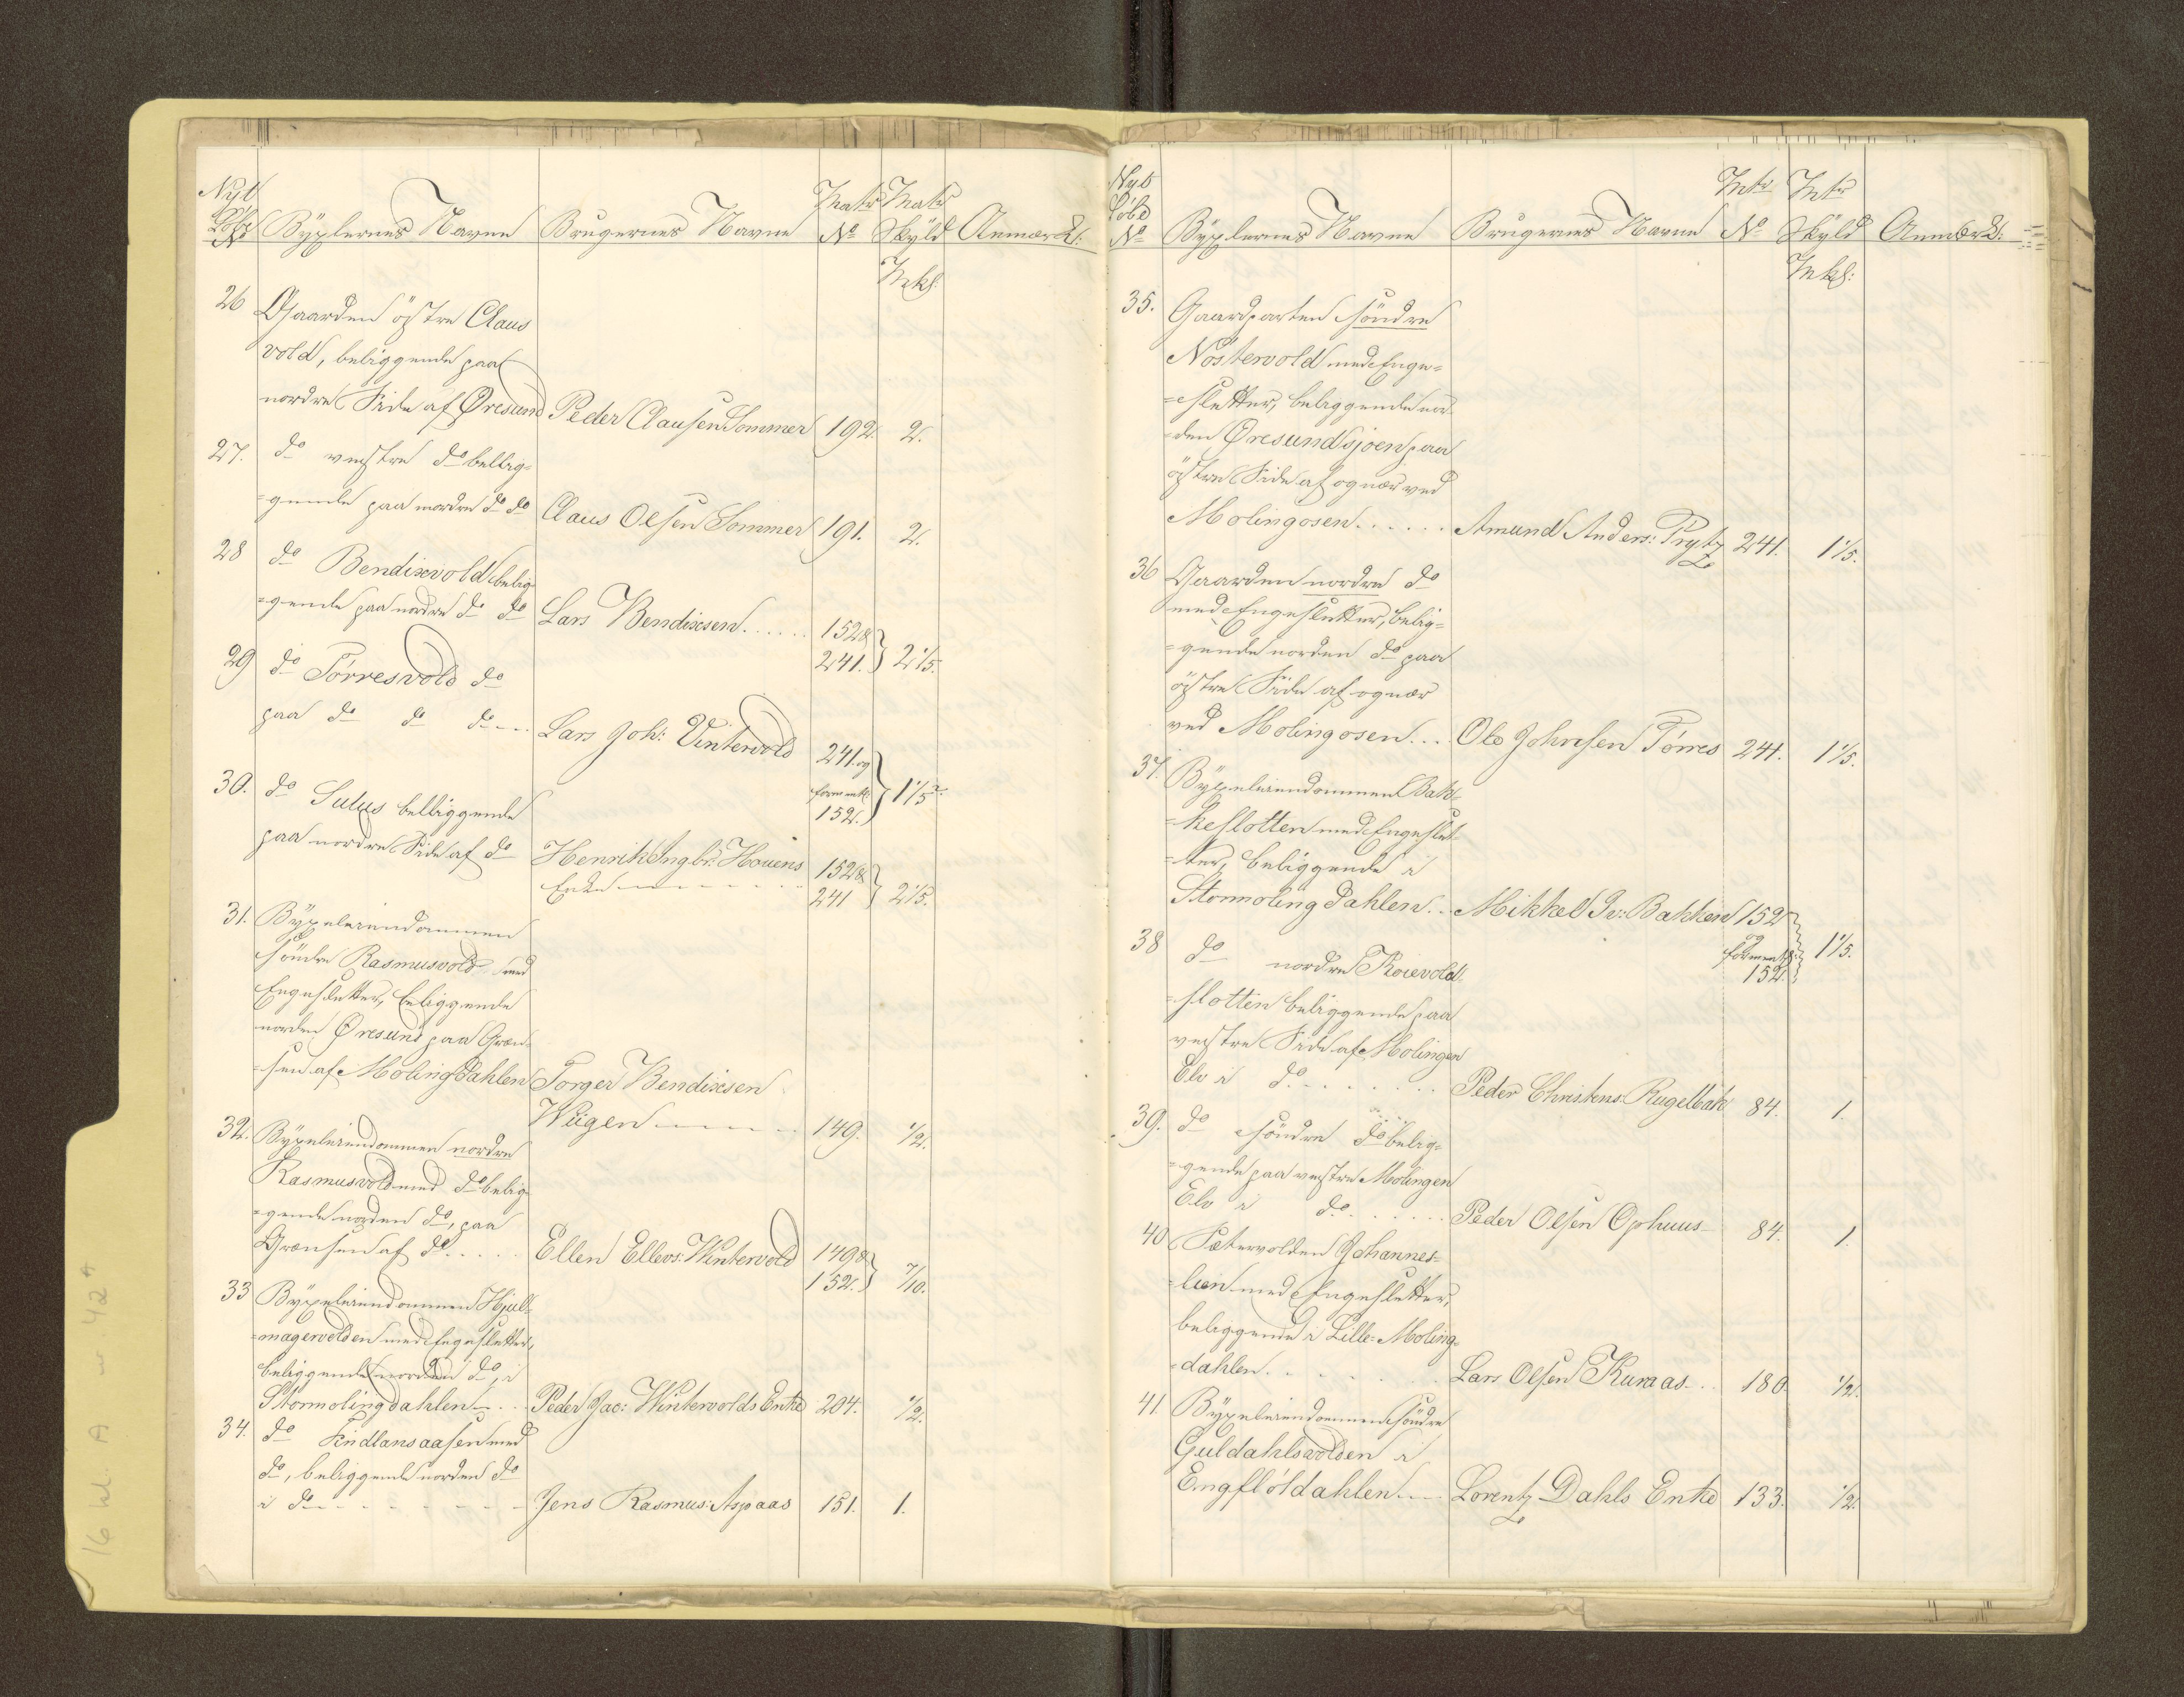 Nyt Løbe No | Byxlernes Navne | Brugernes Navne | Matr No | Matr Skyld | Anmærk:
Mrkl:
26 Gaarden östre Claus
vold, beliggende paa
nordre Side af Øresund Peder Clausen Sommer 192. 2.
27. do vestre do bellig=
=gende paa nordre do do Claus Olsen Sommer 191. 2.
28 do Bendixvold belig=
=gende paa nordre do do Lars Bendixsen...... 152 &
241. 2 1/5.
29 do Törresvold do
paa do do do... Lars Joh: Vintervold 241. og
forment
152. 1 1/5
30. do Sulus belliggende
paa nordre Side af do Henrik Ingbr: Houens 152 &
Enke 241 2 1/5.
31. Byxeleiendommen
söndre Rasmusvold med
Engesletter, beliggende
norden Øresund paa Græn=
=sen af Molingdahlen Torger Bendixsen
Wiigen 149. 1/2.
32. Byxeleiendommen nordre
Rasmusvold med do belig=
=gende norden do, paa
Grænsen af do..... Ellen Ellevs: Wintervold 149 &
152. 7/10.
33 Byxeleiendommen Hjul=
=magervolden med Engesletter,
beliggende norden do, i
Stormolingdahlen... Peder Jac: Wintervolds Enke 204. 1/2.
34. do Findlansaasen med
do, beliggende norden do
i do Jens Rasmus: Aspaas 151. 1.
Nyt Löbe No | Byxlernes Navne | Brugernes Navne | Mtr No | Mtr Skyld | Anmærk:
Mrkl:
35. Gaardparten söndre
Nöstervold med Enge=
=sletter, beliggende nor=
=den Øresundsjoen paa
östre Side af og nær ved
Molingosen...... Amund Anders: Prytz 241. 1 1/5.
36 Gaarden nordre do
med Engesletter, belig=
=gende norden do paa
östre Side af og nær
ved Molingosen... Ole Johnsen Törres 241. 1 1/5.
37. Byxeleiendommen Bak=
=keslotten med Engeslet=
=ter, beliggende i
Stormolingdahlen.. Mikkel Iv: Bakken 152
og
forment
152. 1 1/5.
38 do nordre Koievold
=slotten beliggende paa
vestre Side af Molingen
Elv i do........ Peder Christens: Rugelbak 84. 1.
39. do söndre do belig=
=gende paa vestre Molingen
Elv i do...... Peder Olsen Ophuus 84. 1.
40 Sætervolden Johannes=
=lien med Engesletter,
beliggende i Lille-Moling=
=dahlen....... Lars Olsen Kuraas... 180. 1/2.
41. Byxeleiendommen söndre
Guldahlsvolden i
Engflöldahlen... Lorentz Dahls Enke 133. 1/2.
16 kl. A nr 42 A